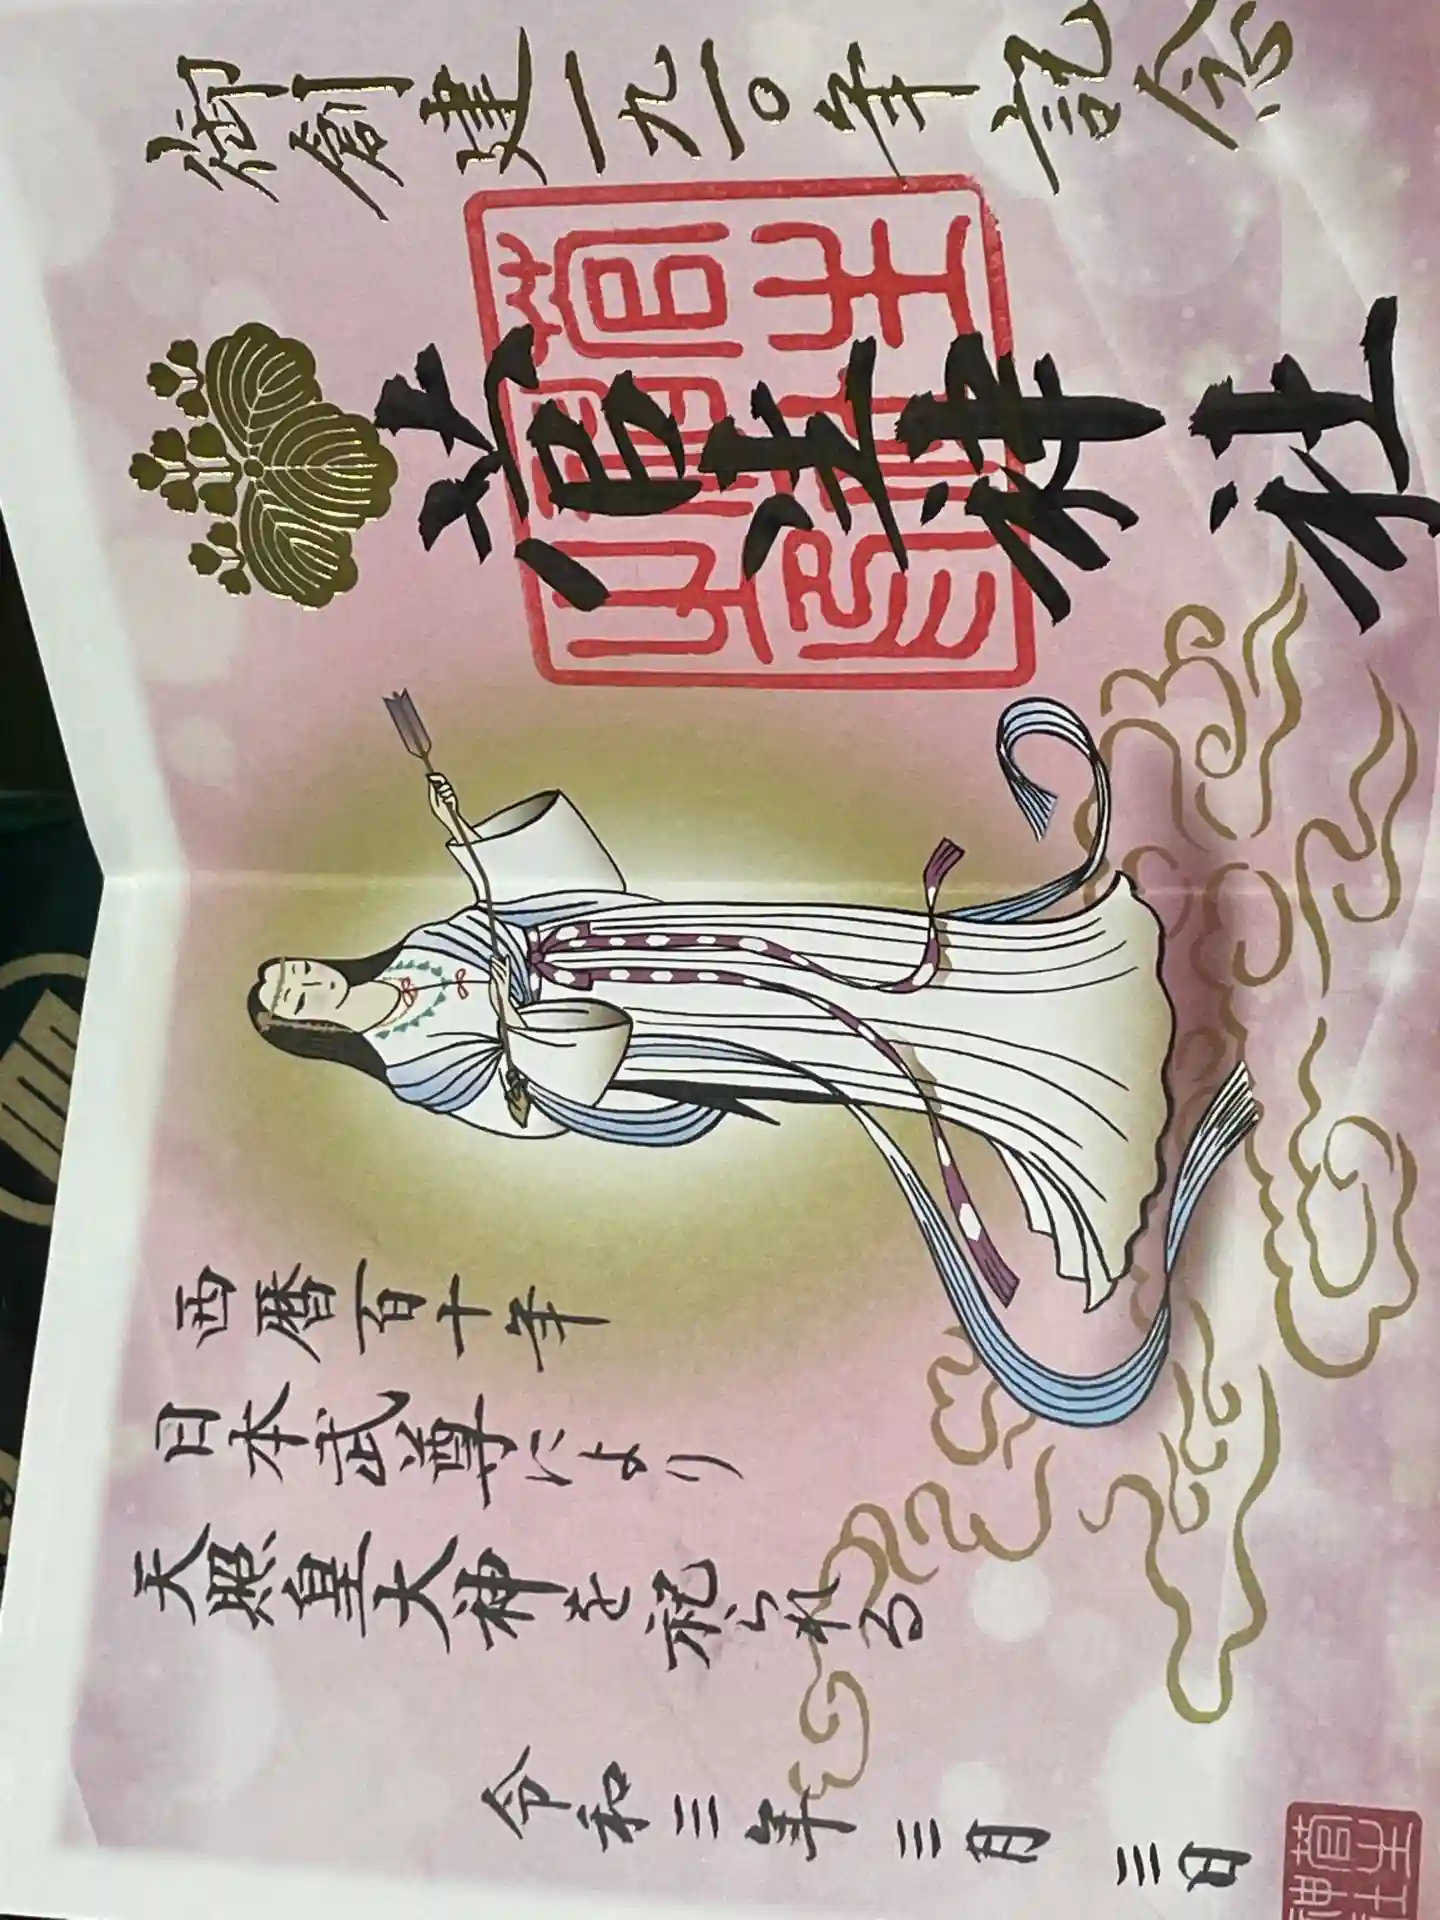 御創建一九一〇年記念
菅生神社
西暦百十年
日本武尊により
天照皇大神を祀られる
令和三年三月三日
菅生
神社